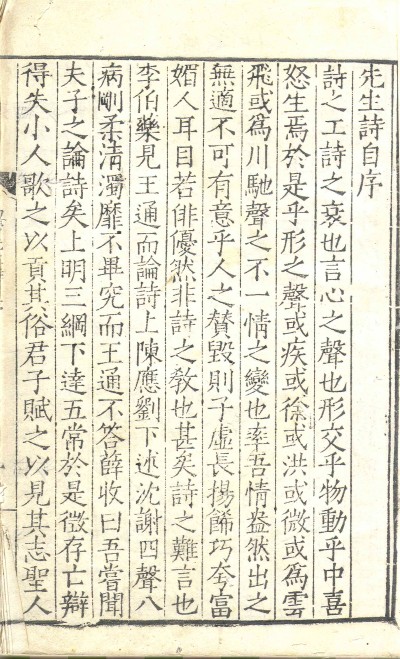 先生詩自序
詩之工詩之衰也言心之聲也形交乎物動乎中喜
怒生焉於是乎形之聲或疾或徐或洪或微或爲雲
飛或爲川馳聲之不一情之變也率吾情盎然出之
無適不可有意乎人之賛毀則子虛長楊餙巧夸富
媚人耳目若俳優然非詩之敎也甚矣詩之難言也
李伯藥見王通而論詩上陳應劉下述沈謝四聲八
病剛柔淸濁靡不畢究而王通不答薛收曰吾嘗聞
夫子之論詩矣上明三綱下達五常於是徵存亡辯
得失小人歌之以貢其俗君子賦之以見其志聖人